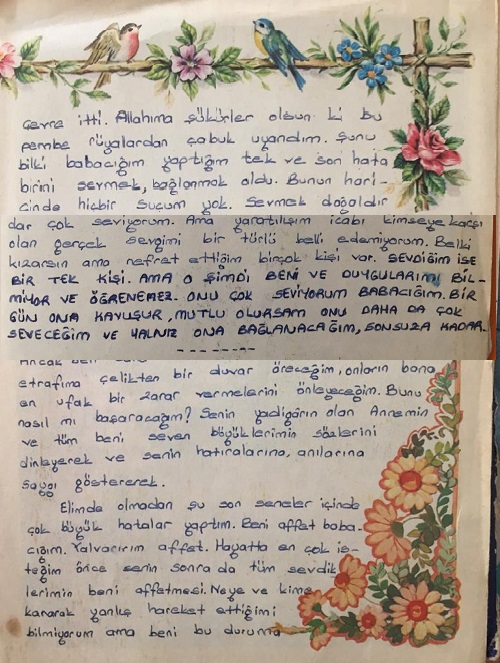 çevre itti. Allahıma şükürler olsun ki bu
pembe rüyalardan çabuk uyandım. Şunu
bilki babacığım yaptığım tek ve son hata
birini sevmek, bağlanmak oldu. Bunun hari-
cinde hiçbir suçum yok. Sevmek doğaldır
dar çok seviyorum. Ama yaratılışım icabı kimseye karşı
olan gerçek sevgimi bir türlü belli edemiyorum. Belki
kızarsın ama nefret ettiğim birçok kişi var. SEVDİĞİM İSE
BİR TEK KİŞİ. AMA O ŞİMDİ BENİ VE DUYGULARIMI BİL-
MİYOR VE ÖĞRENEMEZ. ONU ÇOK SEVİYORUM BABACIĞIM. BİR
GÜN ONA KAVUŞUR, MUTLU OLURSAM ONU DAHA DA ÇOK
SEVECEĞİM VE YALNIZ ONA BAĞLANACAĞIM, SONSUZA KADAR.
etrafıma çelikten bir duvar öreceğim, onların bana
en ufak bir zarar vermelerini önleyeceğim. Bunu
nasıl mı başaracağım? Senin yadigârın olan Annemin
ve tüm beni seven büyüklerimin sözlerini
dinleyerek ve senin hatıralarına, anılarına
saygı göstererek.
Elimde olmadan şu son seneler içinde
çok büyük hatalar yaptım. Beni affet baba-
cığım. Yalvarırım affet. Hayatta en çok is-
teğim önce senin sonra da tüm sevdik
lerimin beni affetmesi. Neye ve kime
kanarak yanlış hareket ettiğimi
bilmiyorum ama beni bu duruma